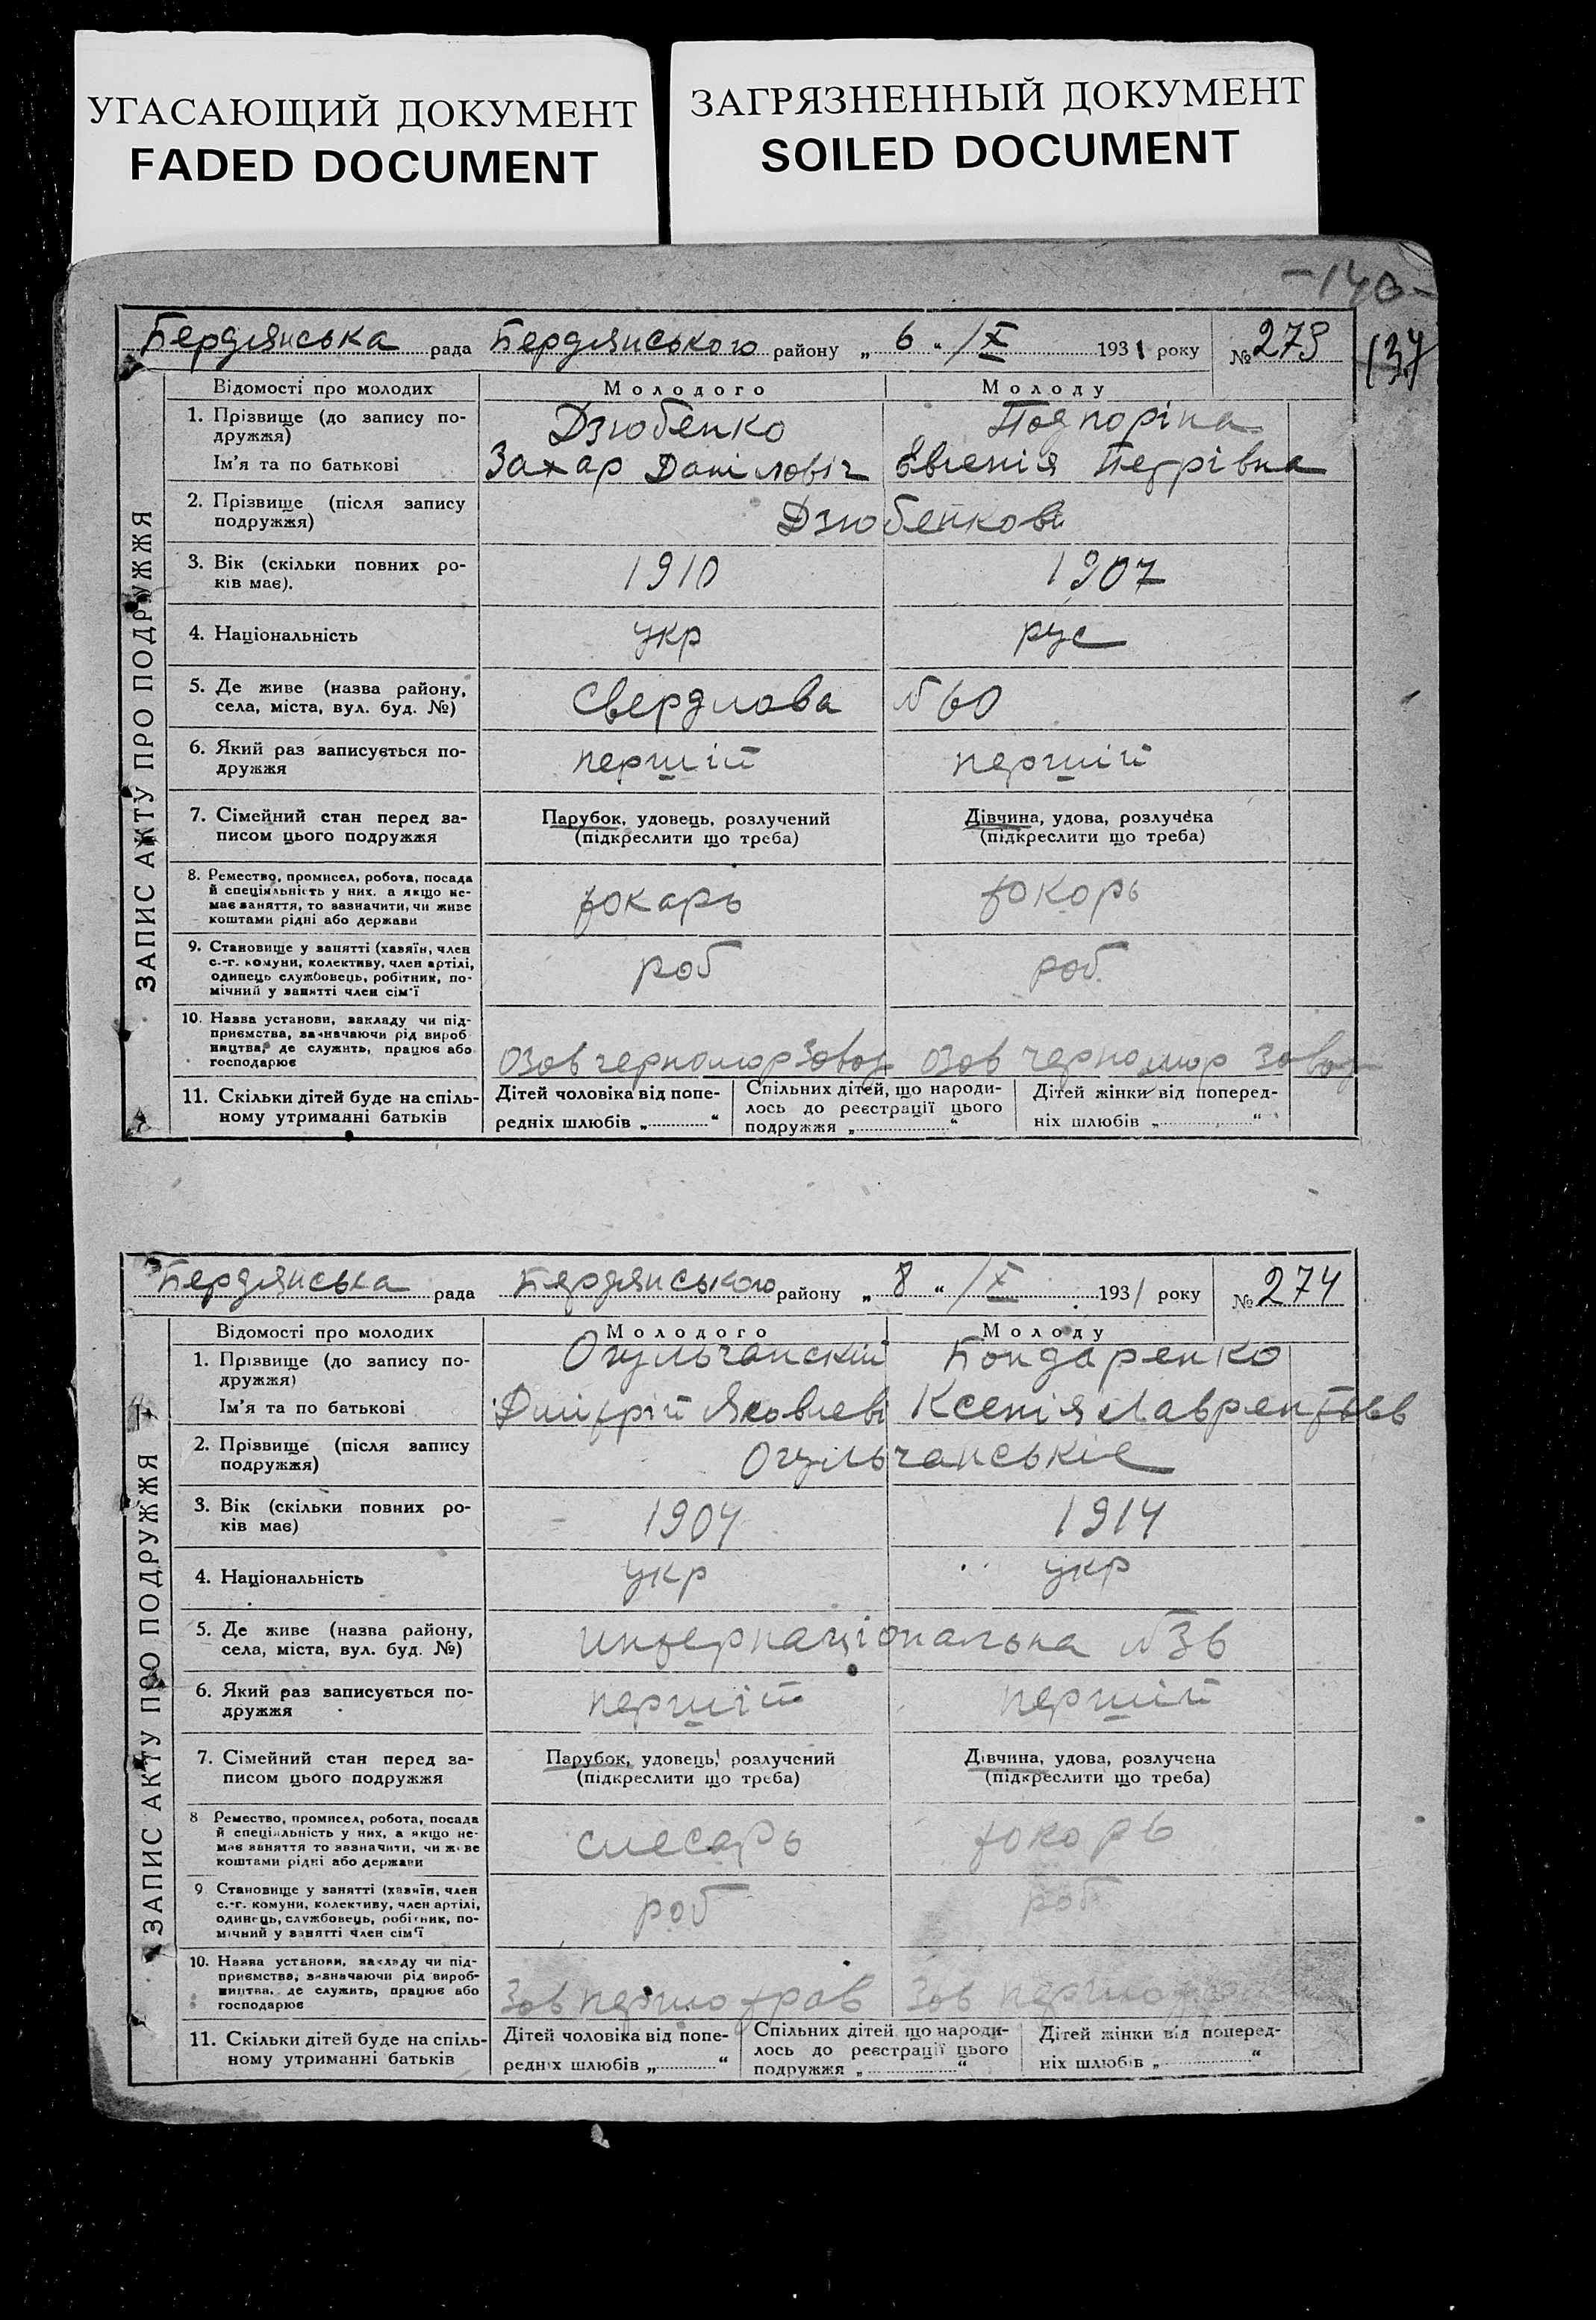 УГАСАЮЩИЙ ДОКУМЕНТ
FADED DOCUMENT
ЗАГРЯЗНЕННЫЙ ДОКУМЕНТ
SOILED DOCUMENT
-140-
137
Бердянська рада Бердянського району „ 6 “ /X 1931 року № 273
ЗАПИС АКТУ ПРО ПОДРУЖЖЯ
Відомості про молодих Молодого Молоду
1. Прізвище (до запису по-
дружжя) Дзюбенко Подпоріна
Ім'я та по батькові Захар Даніловіч Євгенія Петрівна
2. Прізвище (після запису
подружжя) Дзюбенкові
3. Вік (скільки повних ро-
ків має). 1910 1907
4. Національність укр рус
5. Де живе (назва району,
села, міста, вул. буд. №) Свердлова №60
6. Який раз записується по-
дружжя першій першій
7. Сімейний стан перед за-
писом цього подружжя
Парубок, удовець, розлучений
(підкреслити що треба)
Дівчина, удова, розлучена
(підкреслити що треба)
8. Ремество, промисел, робота, посада
й спеціяльність у них, а якщо не-
має заняття, то зазначити, чи живе
коштами рідні або держави
токарь токорь
9. Становище у занятті (хазяїн, член
с.-г. комуни, колективу, член артілі,
одинець службовець, робітник, по-
мічний у занятті член сім'ї
роб роб.
10. Назва установи, закладу чи під-
приємства, зазначаючи рід вироб
ництва, де служить, працює або
господарює
Озовчерномор Завод Озов черномор Завод
11. Скільки дітей буде на спіль-
ному утриманні батьків
Дітей чоловіка від попе-
редніх шлюбів „ “
Спільних дітей, що народи-
лось до реєстрації цього
подружжя „ “
Дітей жінки від поперед-
ніх шлюбів „ “
Бердянська рада Бердянського району „ 8 “ /X 1931 року № 274
ЗАПИС АКТУ ПРО ПОДРУЖЖЯ
Відомості про молодих Молодого Молоду
1. Прізвище (до запису по-
дружжя) Огульчанский Бондаренко
Ім'я та по батькові Дмітрій Яковлеві Ксенія Лаврентьев
2. Прізвище (після запису
подружжя) Огульчанські
3. Вік (скільки повних ро-
ків має) 1904 1914
4. Національність укр укр
5. Де живе (назва району,
села, міста, вул. буд. №) интернаціональна №36
6. Який раз записується по-
дружжя першій першій
7. Сімейний стан перед за-
писом цього подружжя
Парубок, удовець, розлучений
(підкреслити що треба)
Дівчина, удова, розлучена
(підкреслити що треба)
8 Ремество, промисел, робота, посада
й спеціяльність у них, а якщо не-
має заняття то зазначити, чи живе
коштами рідні або держави
слесарь токорь
9 Становище у занятті (хазяїн, член
с.-г. комуни, колективу, член артілі,
одинець, службовець, робітник, по-
мічний у занятті член сім'ї
роб роб
10. Назва установи, закладу чи під-
приємства, зазначаючи рід вироб-
ництва, де служить, працює або
господарює
Зов першотрав Зов
11. Скільки дітей буде на спіль-
ному утриманні батьків
Дітей чоловіка від попе-
редніх шлюбів „ “
Спільних дітей що народи-
лось до реєстрації цього
подружжя „ “
Дітей жінки від поперед-
ніх шлюбів „ “